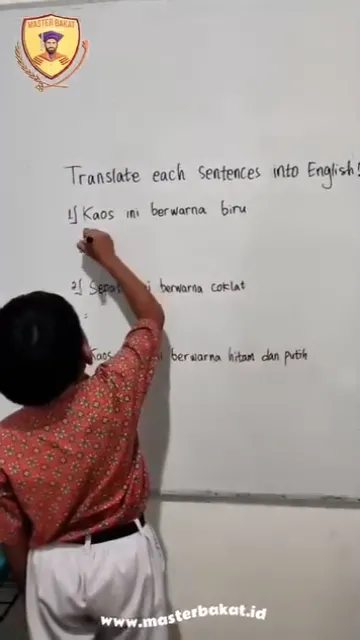 MASTER BAKAT
Translate each Sentences into English!
1] Kaos ini berwarna biru
2] berwarna coklat
=
Kaos berwarna hitam dan putih
www.masterbakat.id